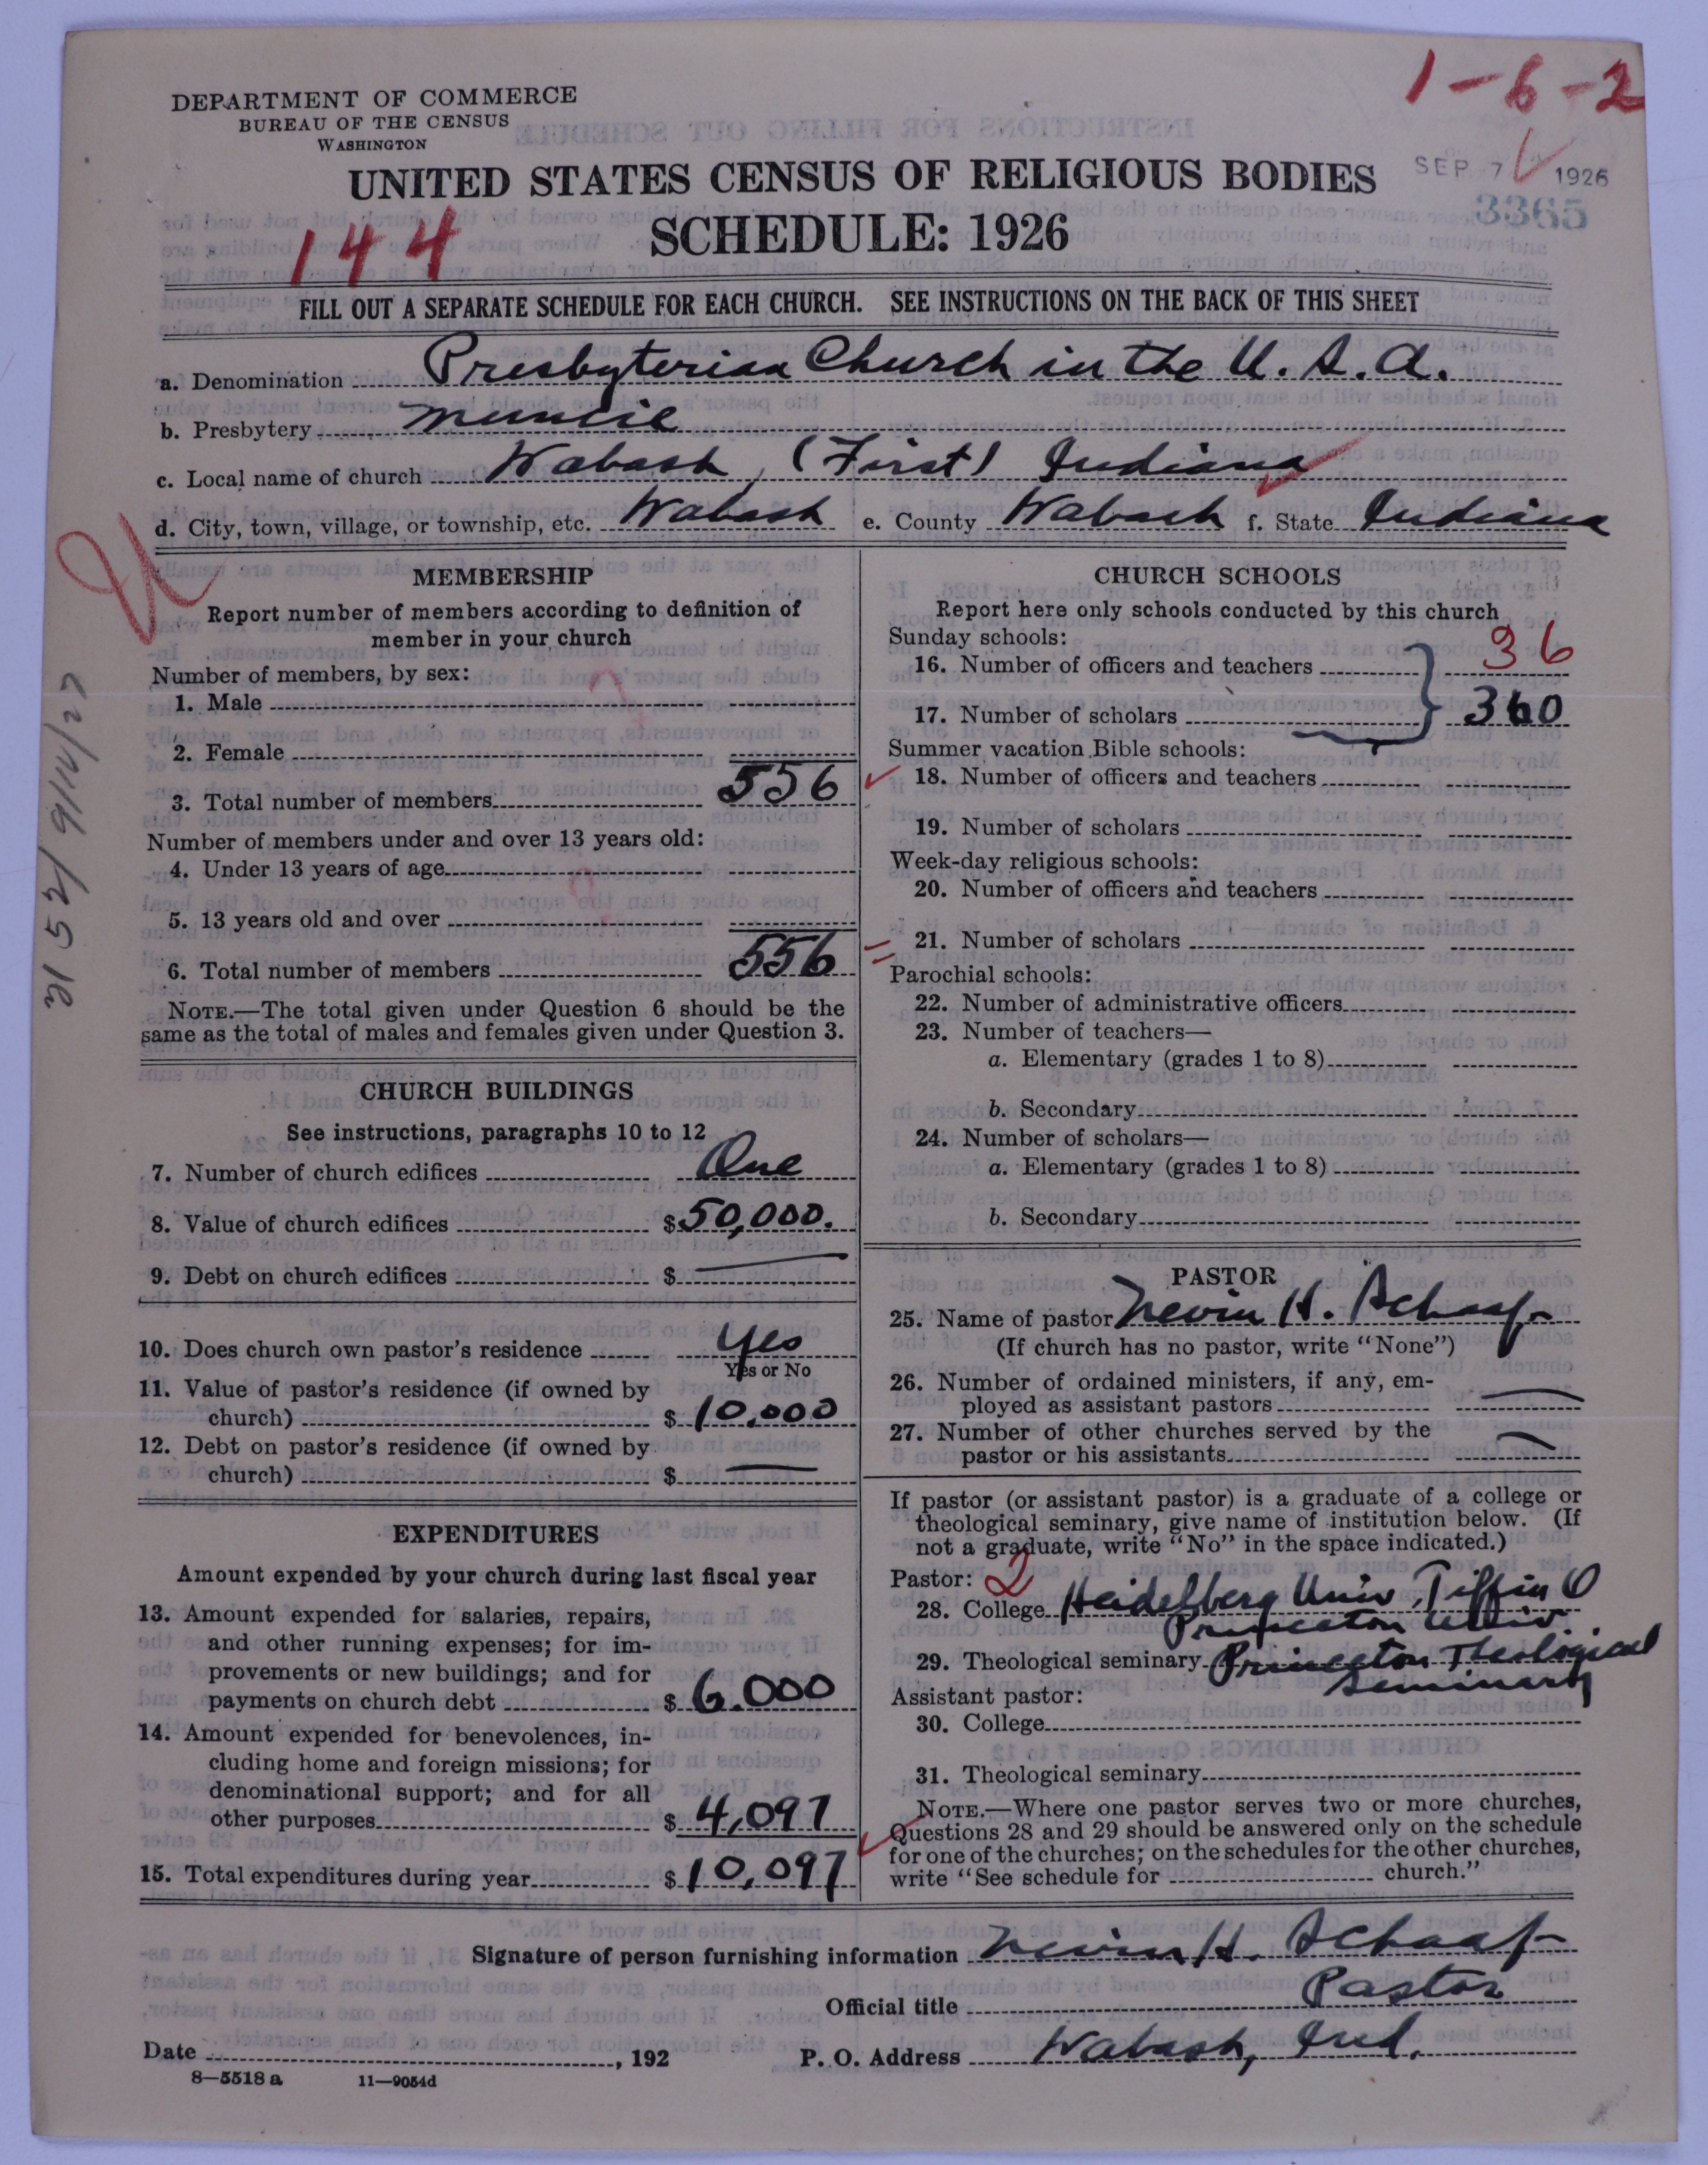 1-6-2
DEPARTMENT OF COMMERCE
BUREAU OF THE CENSUS
WASHINGTON
UNITED STATES CENSUS OF RELIGIOUS BODIES
SEP 7 1926
3365
144
SCHEDULE: 1926
FILL OUT A SEPARATE SCHEDULE FOR EACH CHURCH. SEE INSTRUCTIONS ON THE BACK OF THIS SHEET
a. Denomination Presbyterian Church in the U.S.A.
b. Presbytery Muncie
c. Local name of church Wabash, (First) Indiana
d. City, town, village, or township, etc. Wabash e. County Wabash f. State Indiana
MEMBERSHIP
Report number of members according to definition of
member in your church
Number of members, by sex:
1. Male
2. Female
3. Total number of members 556
Number of members under and over 13 years old:
4. Under 13 years of age
5. 13 years old and over
6. Total number of members 556
NOTE.—The total given under Question 6 should be the
same as the total of males and females given under Question 3.
CHURCH BUILDINGS
See instructions, paragraphs 10 to 12
7. Number of church edifices One
8. Value of church edifices $50,000.
9. Debt on church edifices $ —
10. Does church own pastor's residence Yes
Yes or No
11. Value of pastor's residence (if owned by
church) $ 10,000
12. Debt on pastor's residence (if owned by
church) $ —
EXPENDITURES
Amount expended by your church during last fiscal year
13. Amount expended for salaries, repairs,
and other running expenses; for im-
provements or new buildings; and for
payments on church debt $ 6.000
14. Amount expended for benevolences, in-
cluding home and foreign missions; for
denominational support; and for all
other purposes $ 4,097
15. Total expenditures during year $ 10,097
CHURCH SCHOOLS
Report here only schools conducted by this church
Sunday schools:
16. Number of officers and teachers 36
17. Number of scholars 360
Summer vacation Bible schools:
18. Number of officers and teachers
19. Number of scholars
Week-day religious schools:
20. Number of officers and teachers
21. Number of scholars
Parochial schools:
22. Number of administrative officers
23. Number of teachers—
a. Elementary (grades 1 to 8)
b. Secondary
24. Number of scholars—
a. Elementary (grades 1 to 8)
b. Secondary
PASTOR
25. Name of pastor Nevin H. Schaaf
(If church has no pastor, write "None")
26. Number of ordained ministers, if any, em-
ployed as assistant pastors —
27. Number of other churches served by the
pastor or his assistants —
If pastor (or assistant pastor) is a graduate of a college or
theological seminary, give name of institution below. (If
not a graduate, write "No" in the space indicated.)
Pastor: 2
28. College Heidelberg Univ. Tiffin O
Princeton Univ.
29. Theological seminary Princeton Theological
Seminary
Assistant pastor:
30. College
31. Theological seminary
NOTE.—Where one pastor serves two or more churches,
Questions 28 and 29 should be answered only on the schedule
for one of the churches; on the schedules for the other churches,
write "See schedule for church."
Signature of person furnishing information Nevin H. Schaaf
Official title Pastor
Date , 192 P. O. Address Wabash, Ind.
8—5518 a 11—9054d